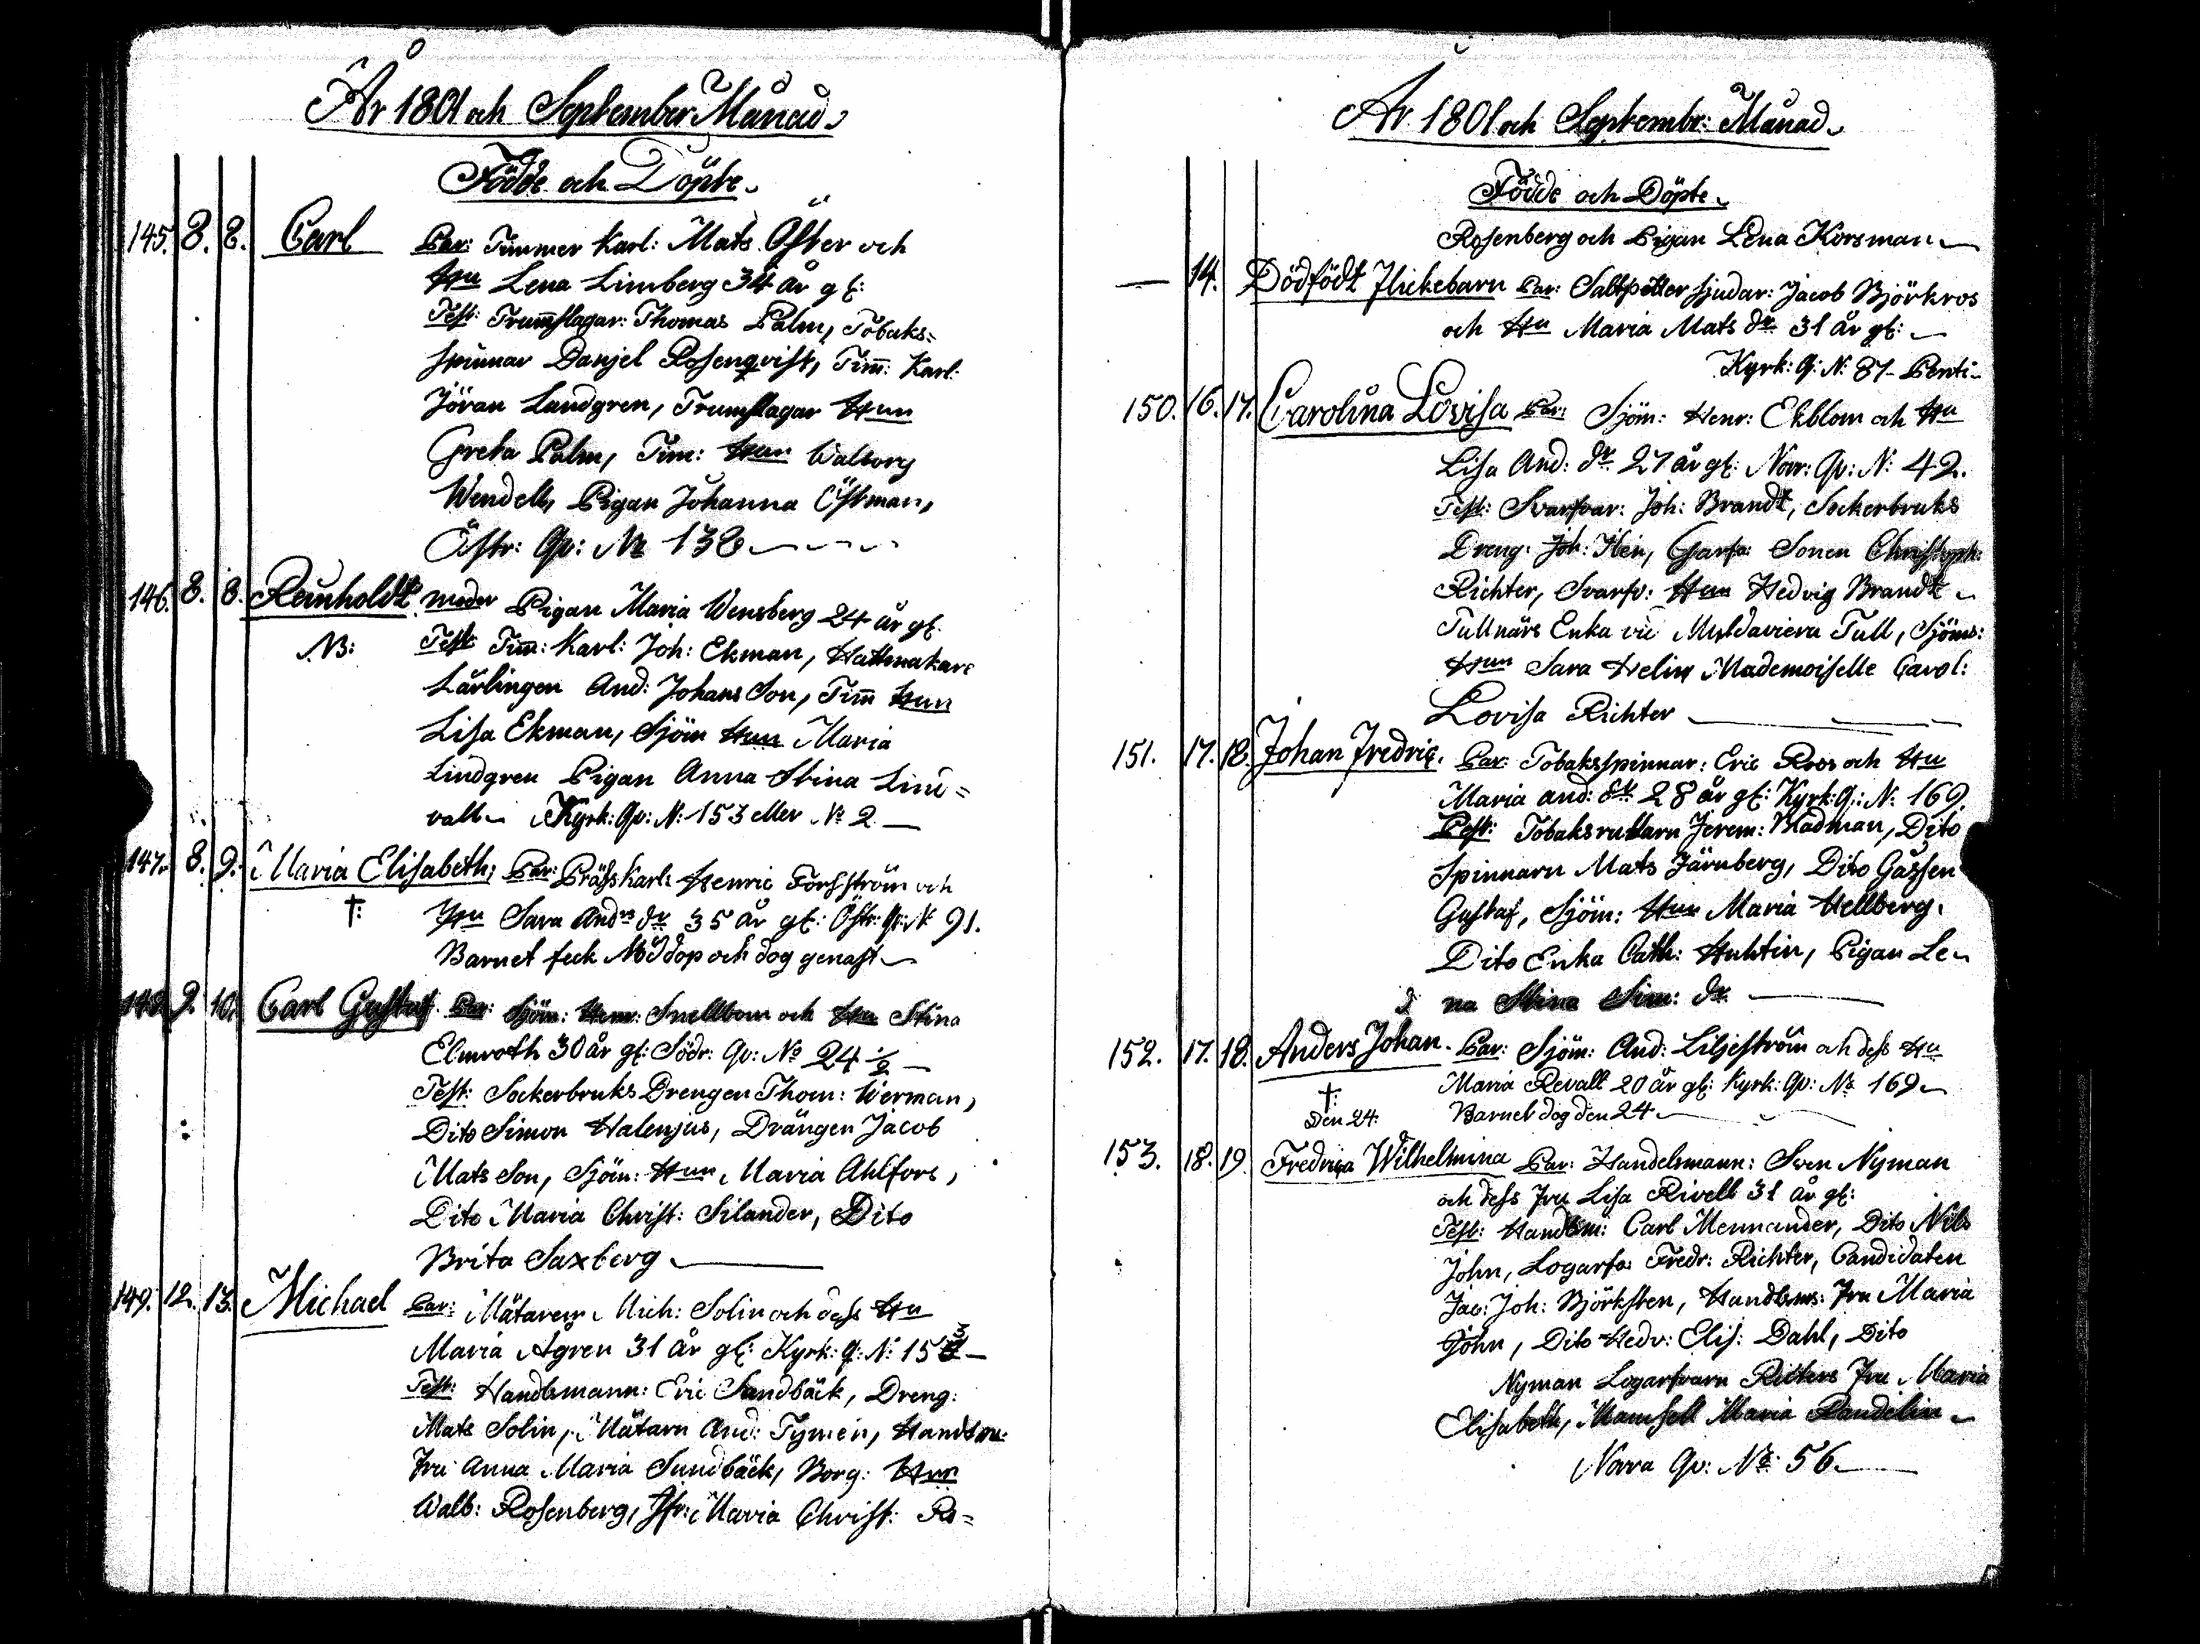 År 1801 och September Månad.
Födde och Döpte.
145. 8. 8. Carl Par: Timmer Karl: Mats Öster och
Hu Lena Limberg 34 år gl:
Test: Trumslagar: Thomas Palm, Tobaks=
spinnar Danjel Rosenqvist, Tim: Karl:
Jöran Landgren, Trumslagar Hun
Greta Palm, Tim: Hun Walborg
Wendell, Pigan Johanna Östman,
Östr: Qv: No 138
146. 8. 8. Reinholdt moder Pigan Maria Wensberg 24 år gl.
NB: Test: Tim: Karl: Joh: Ekman, Hattmakare
Lärlingen And: Johans Son, Tim Hun
Lisa Ekman, Sjöm Hun Maria
Lindgren Pigan Anna Stina Lind=
vall Kyrk: Qv: N: 153 eller No 2
147. 8. 9. Maria Elisabeth; Par: Präss Karl: Henric Forsström och
†: Hu Sara Andrs dr 35 år gl: Östr: Qv: No 91.
Barnet feck Nöddop och dog genast
148. 9. 10. Carl Gustaf. Par: Sjöm: Henr: Snellbom och Hu Stina
Elmroth 30 år gl: Södr: Qv: No 24 1/2
Test: Sockerbruks Drengen Thom: Werman,
Dito Simon Halenjus, Drängen Jacob
Mats Son, Sjöm: Hun Maria Ahlfors,
Dito Maria Christ: Silander, Dito
Brita Saxberg
149. 12. 13. Michael Par: Mätaren Mich: Solin och dess Hu
Maria Ågren 31 år gl: Kyrk: Q: N: 153
Test: Handlsmann: Eric Sundbäck, Dreng:
Mats Solin, Mätarn And: Tymén, Handlsm:
Fru Anna Maria Sundbäck, Borg: Hun
Walb: Rosenberg, Jfr: Maria Christ: Ro=
År 1801 och Septembr: Månad.
Födde och Döpte.
Rosenberg och Pigan Lena Korsman
— 14. Dödfödt Flickebarn Par: Saltpetter sjudar: Jacob Björkros
och Hu Maria Mats dr 31 år gl:
Kyrk: Q: N: 87 Penti
150. 16. 17. Carolina Lovisa Par: Sjöm: Henr: Ekblom och Hu
Lisa And: dr 27 år gl: Norr: Qv: N: 42.
Test: Svarfvar: Joh: Brandt, Sockerbruks
Dreng: Joh: Garfv: Sonen Christoph:
Richter, Svarfv: Hun Hedvig Brandt
Tullnärs Enka vid Tull, Sjöms:
Hun Sara Helin Mademoiselle Carol:
Lovisa Richter
151. 17. 18. Johan Fredric. Par: Tobaksspinnar: Eric Roos och Hu
Maria And: dr 28 år gl: Kyrk: Q: N: 169.
Test: Tobaksrullarn Jerem: Bladman, Dito
Spinnarn Mats Järnberg, Dito Gässen
Gustaf, Sjöm: Hun Maria Hellberg.
Dito Enka Cath: Huhtin, Pigan Le-
na Stina Sim: dr.
152. 17. 18. Anders Johan. Par: Sjöm: And: Liljeström och dess Hu
Maria Revall 20 år gl: Kyrk: Qv: No 169
†: Den 24. Barnet dog den 24
153. 18. 19. Fredrica Wilhelmina Par: Handelsmann: Sven Nyman
och dess Fru Lisa Rivell 31 år gl:
Test: Handlsm: Carl Mennander, Dito Nils
John, Logarfv: Fredr: Richter, Candidaten
Jac: Joh: Björksten, Handlsms: Fru Maria
John, Dito Hedv: Elis: Dahl, Dito
Nyman Logarfvarn Richters Fru Maria
Elisabeth, Mamsell Maria Randelin
Norra Qv: No 56